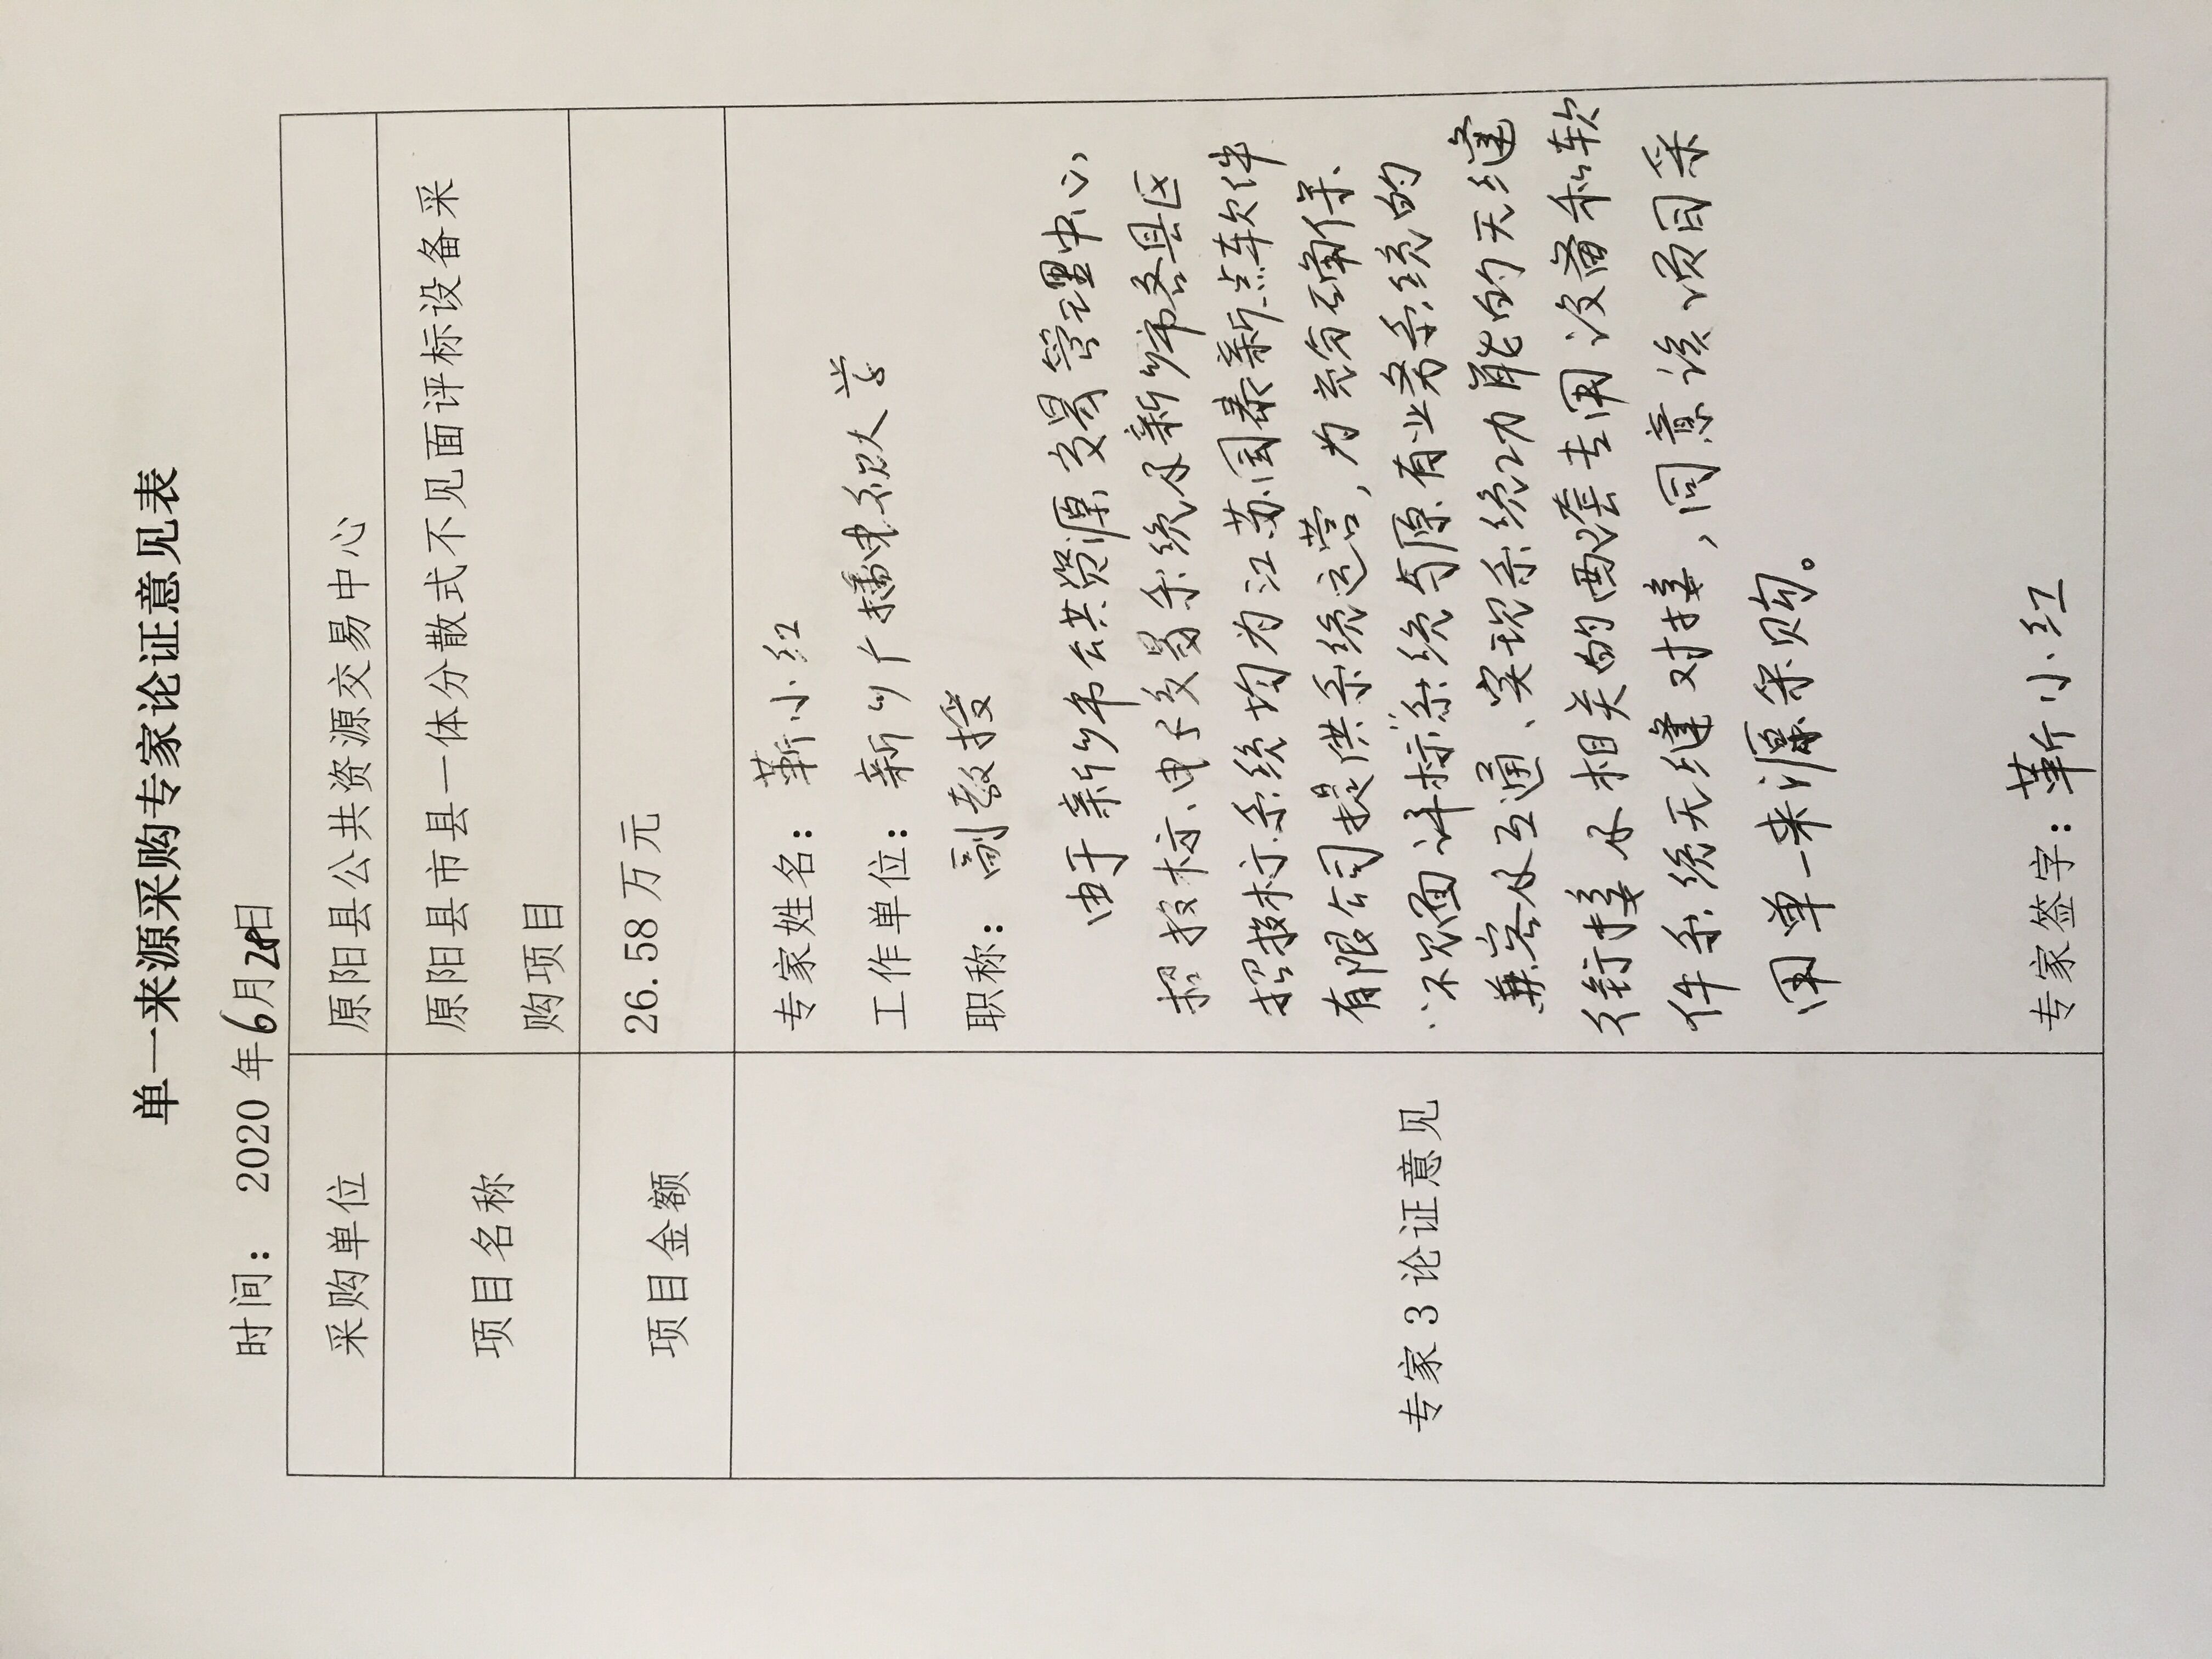 单一来源采购专家论证意见表
时间： 2020 年6月28日
采购单位
原阳县公共资源交易中心
项目名称
原阳县市县一体分散式不见面评标设备采
购项目
项目金额
26.58 万元
专家 3 论证意见
专家姓名： 靳小红
工作单位： 新乡广播电视大学
职称： 副教授
由于新乡市公共资源交易管理中心
招投标、电子交易系统及新乡市各县区
招投标系统均为江苏国泰新点软件
有限公司提供系统运营，为充分确保
"不见面评标"系统与原有业务系统的
兼容及互通、实现系统功能的无缝
衔接及相关的配套专用设备和软
件系统无缝对接，同意该项目采
用单一来源采购。
专家签字：靳小红